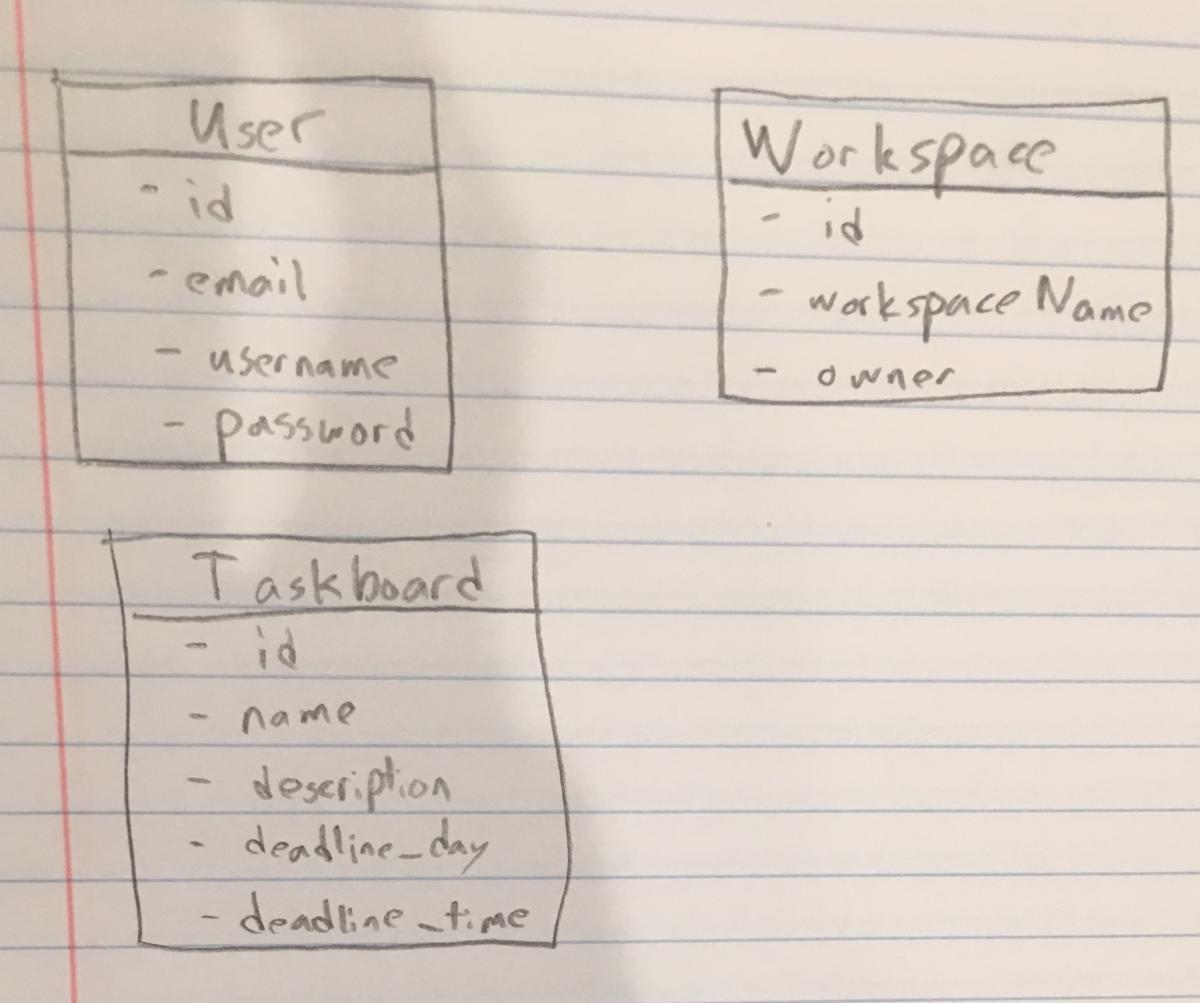 User
- id
- email
- username
- password
Workspace
- id
- workspaceName
- owner
Taskboard
- id
- name
- description
- deadline_day
- deadline_time